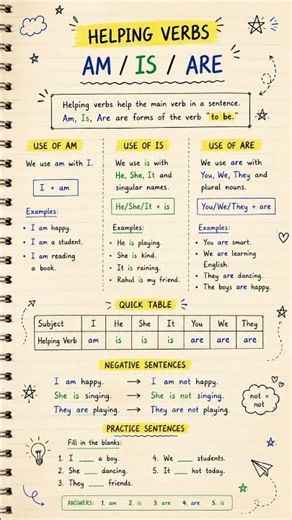 HELPING VERBS
AM / IS / ARE
Helping verbs help the main verb in a sentence.
Am, Is, Are are forms of the verb "to be."
USE OF AM
We use am with I.
I + am
Examples:
• I am happy.
• I am a student.
• I am reading
a book.
USE OF IS
We use is with
He, She, It and
singular names.
He/She/It + is
Examples:
• He is playing.
• She is kind.
• It is raining.
• Rahul is my friend.
USE OF ARE
We use are with
You, We, They and
plural nouns.
You/We/They + are
Examples:
• You are smart.
• We are learning
English.
• They are dancing.
• The boys are happy.
QUICK TABLE
Subject I He She It You We They
Helping Verb am is is is are are are
NEGATIVE SENTENCES
I am happy. → I am not happy.
She is singing. → She is not singing.
They are playing. → They are not playing.
not =
not
PRACTICE SENTENCES
Fill in the blanks:
1. I ___ a boy.
2. She ___ dancing.
3. They ___ friends.
4. We ___ students.
5. It ___ hot today.
ANSWERS: 1. am 2. is 3. are 4. are 5. is